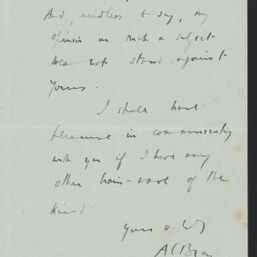 And, needless to say, my
opinion on such a subject
can not stand against
yours.
I shall have
pleasure in communicating
with you if I have any
other brain-wave of the
kind
Yours v.